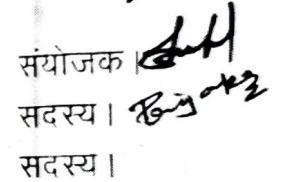 संयोजक |
सदस्य |
सदस्य |